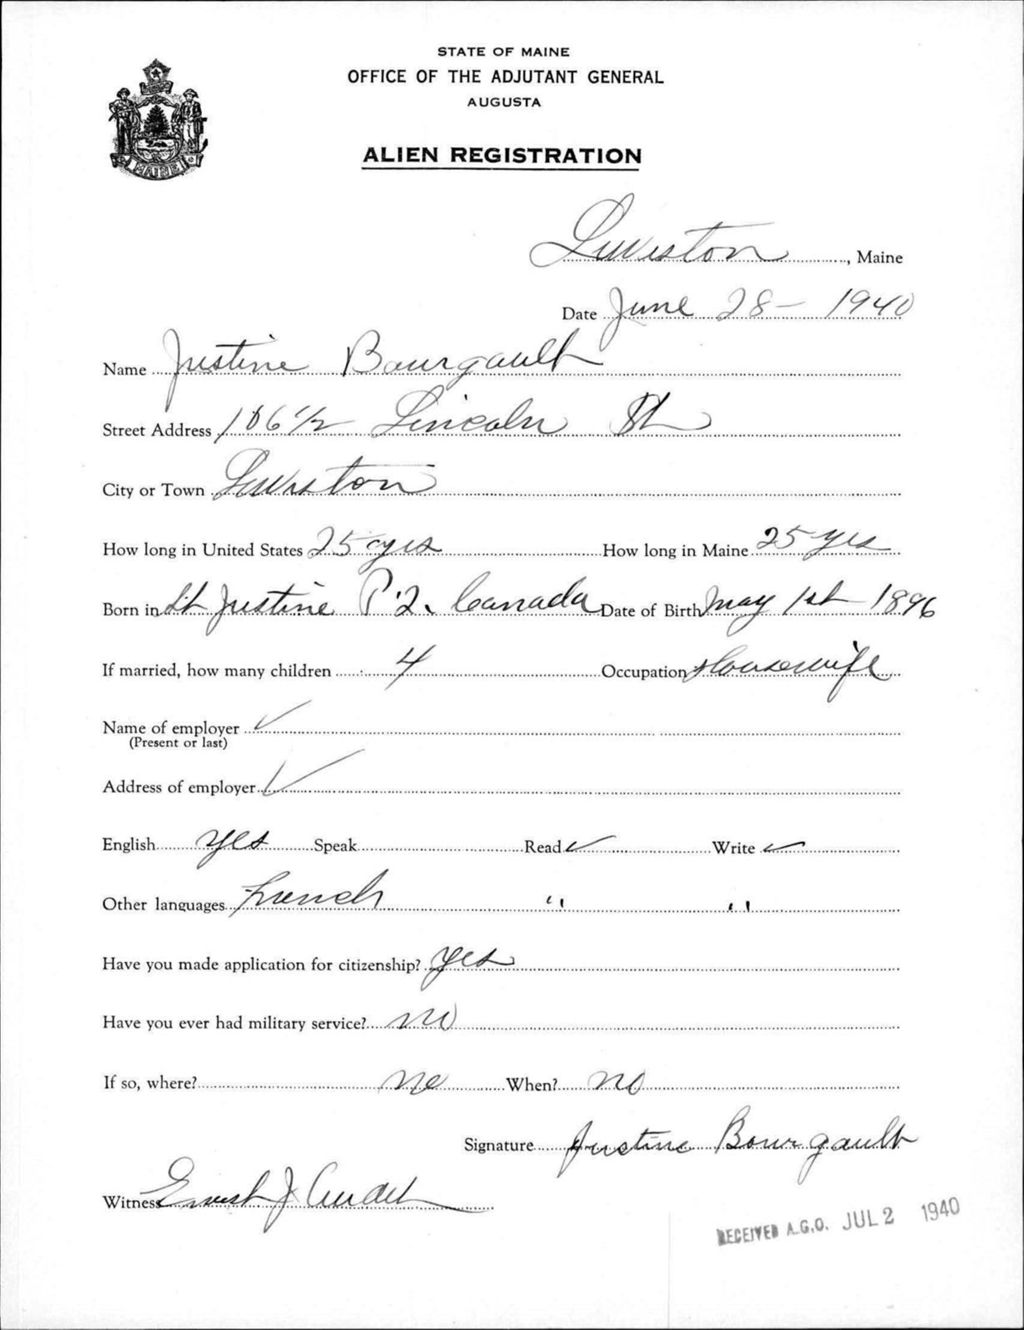 STATE OF MAINE
OFFICE OF THE ADJUTANT GENERAL
AUGUSTA
ALIEN REGISTRATION
MAINE
Lewiston, Maine
Date June 28 - 1940
Name Justine Bourgault
Street Address 106 1/2 Lincoln St
City or Town Lewiston
How long in United States 25 yrs How long in Maine 25 yrs
Born in St Justine P.Q. Canada Date of Birth May 1st 1896
If married, how many children 4 Occupation Housewife
Name of employer ✓
(Present or last)
Address of employer ✓
English yes Speak Read ✓ Write ✓
Other languages French " "
Have you made application for citizenship? Yes
Have you ever had military service? no
If so, where? no When? no
Signature Justine Bourgault
Witness Ernest J
RECEIVED A.G.O. JUL 2 1940